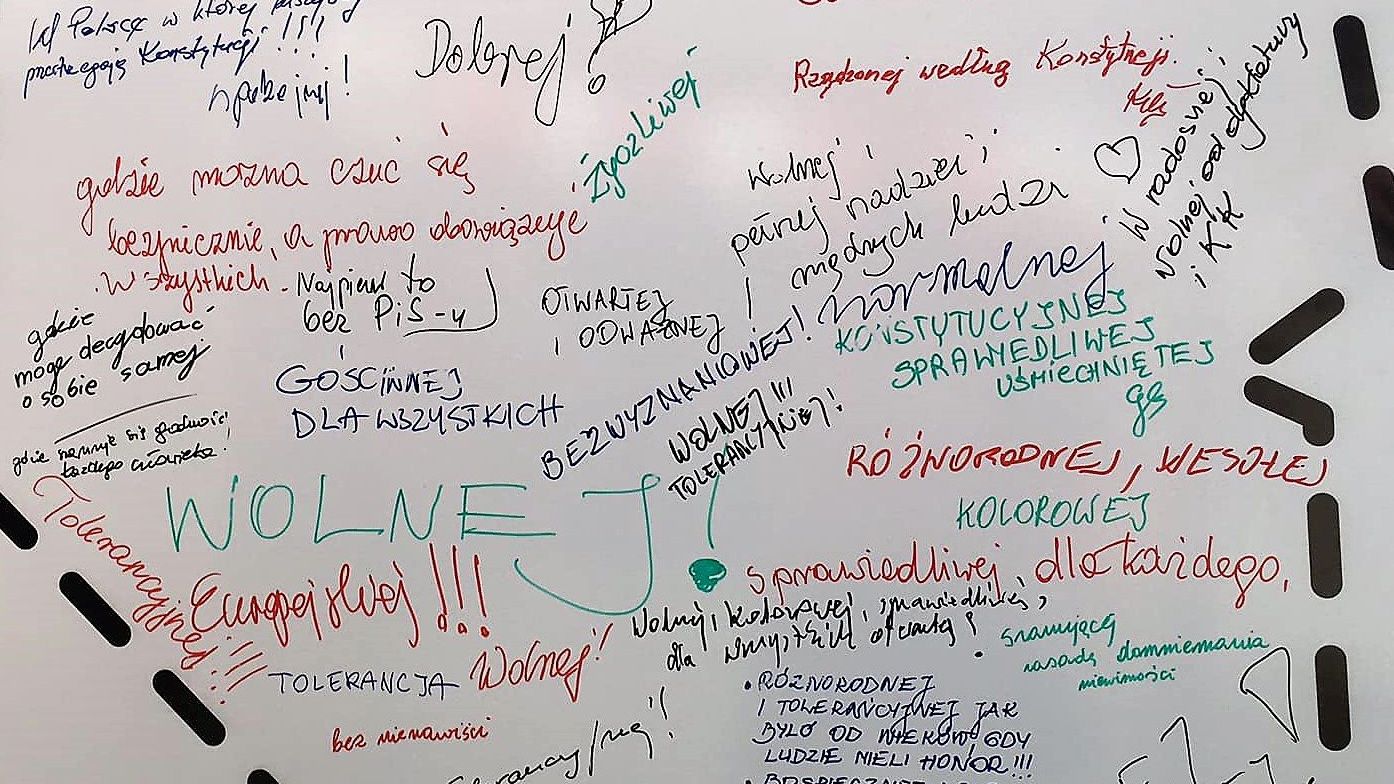 W Polsce w której wszyscy
przestrzegają Konstytucji!!!
spokojnej!
Dobrej!
Rządzonej według Konstytucji.
W radosnej,
wolnej od dyktatury
i KK
Życzliwej
gdzie można czuć się
bezpiecznie, a prawo obowiązuje
wszystkich.
Najpierw to
bez PiS-u
Wolnej,
pełnej nadziei,
i mądrych ludzi
normalnej
OTWARTEJ
I ODWAŻNEJ!
gdzie
mogę decydować
o sobie samej
KONSTYTUCYJNEJ
SPRAWIEDLIWEJ
UŚMIECHNIĘTEJ
GOŚCINNEJ
DLA WSZYSTKICH
BEZWYZNANIOWEJ!
WOLNEJ!!!
TOLERANCYJNEJ!
gdzie szanuje się godność
każdego człowieka!
RÓŻNORODNEJ, WESOŁEJ
KOLOROWEJ
WOLNEJ!
Tolerancyjnej!!!
Europejskiej!!!
sprawiedliwej, dla każdego,
Wolnej, kolorowej, sprawiedliwej,
dla wszystkich otwartej!
szanującej
zasadę domniemania
niewinności
TOLERANCJA
Wolnej!
bez nienawiści
• RÓŻNORODNEJ
I TOLERANCYJNEJ JAK
BYŁO OD WIEKÓW GDY
LUDZIE MIELI HONOR!!!